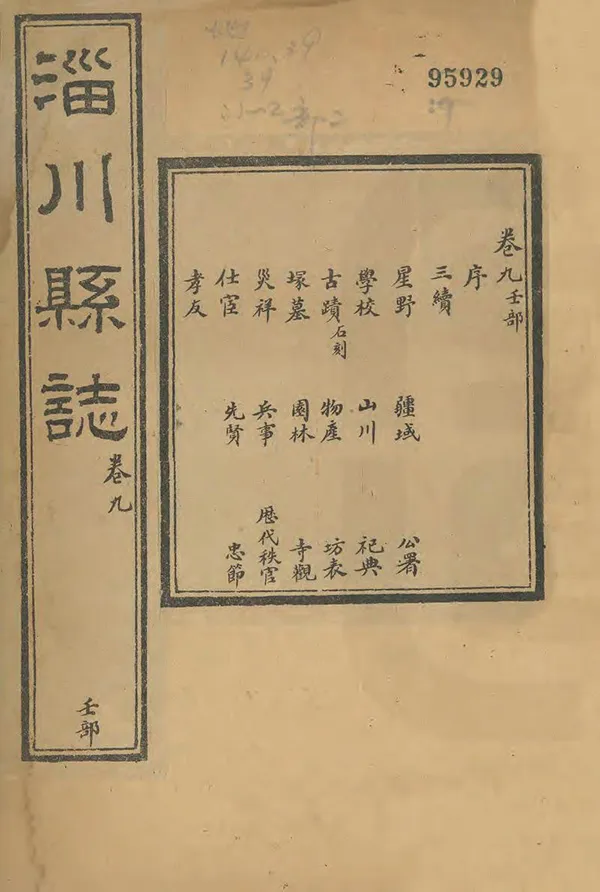 95929
卷九壬部
序
三續
星野 疆域 公署
學校 山川 祀典
古蹟石刻 物產 坊表
塚墓 園林 寺觀
災祥 兵事 歷代秩官
仕宦 先賢 忠節
孝友
淄川縣誌
卷九
壬部